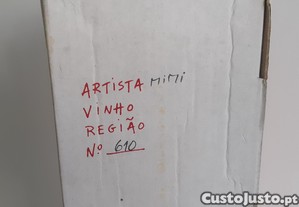 ARTISTA MiMi
VINHO
REGIÃO
Nº 610
CustoJusto.pt